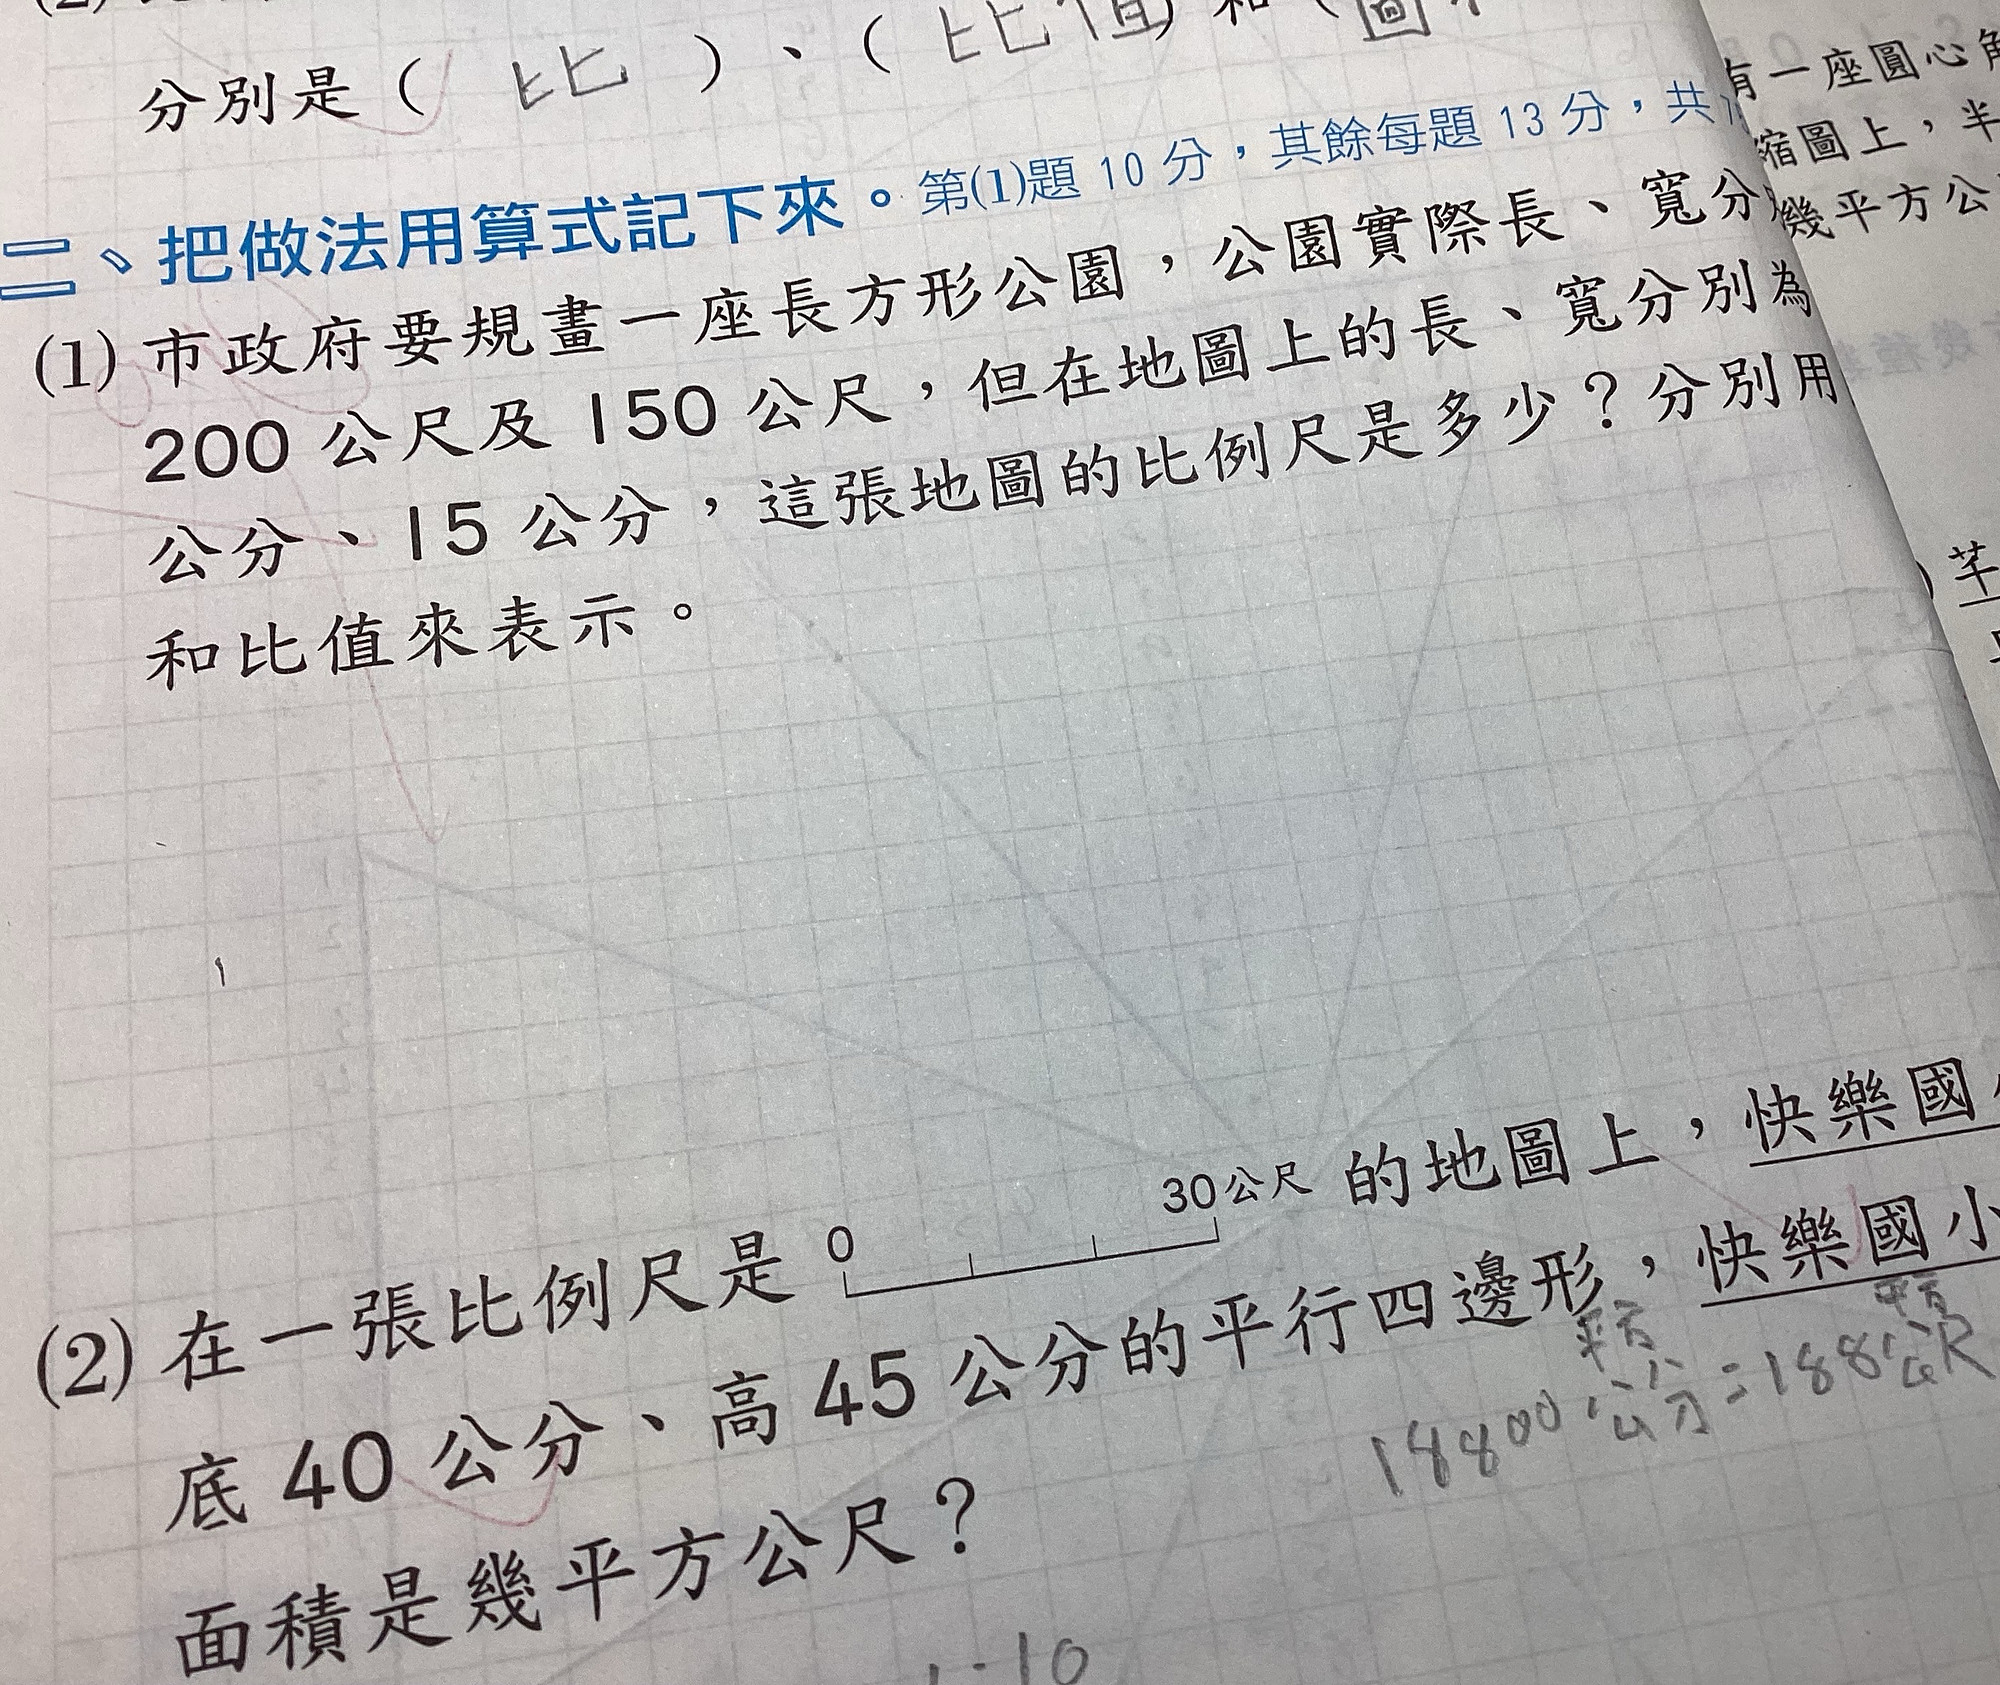 分別是（ 比 ）、（ 比值 ）和（圖
二、把做法用算式記下來。第(1)題 10 分，其餘每題 13 分，共
(1) 市政府要規畫一座長方形公園，公園實際長、寬分
200 公尺及 150 公尺，但在地圖上的長、寬分別為
公分、15 公分，這張地圖的比例尺是多少？分別用
和比值來表示。
(2) 在一張比例尺是 0 30公尺 的地圖上，快樂國
底 40 公分、高 45 公分的平行四邊形，快樂國小
面積是幾平方公尺？
18800平方公分=188平方公尺
1:10
有一座圓心角
縮圖上，半
幾平方公